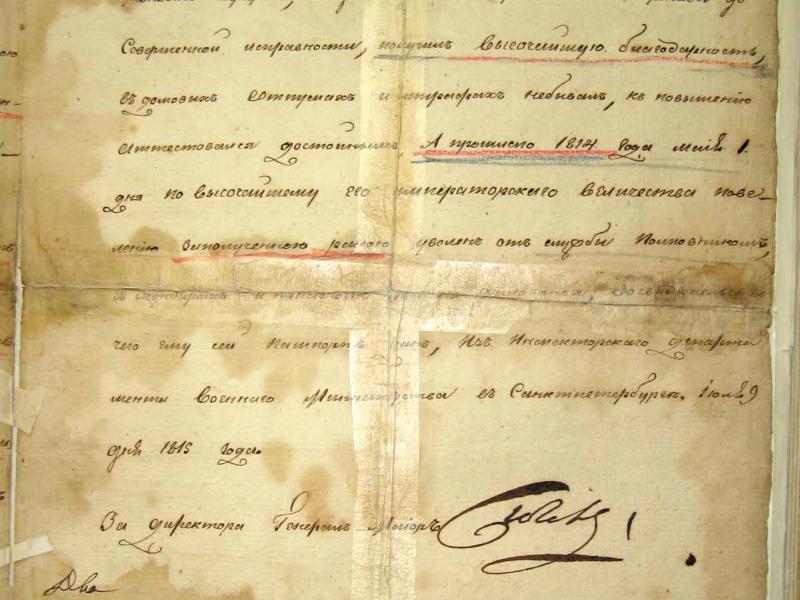 Совершенной исправности, получилъ высочайшую благодарность,
въ домовыхъ отпускахъ и штрафахъ небывалъ, къ повышению
аттестовался достойнымъ, А прошлаго 1814. года маия 1.
дня по высочайшему его императорского величества пове-
лению заполученною раною уволенъ отъ службы Полковникомъ,
съ мундиромъ и
чего ему сей Пашпортъ данъ, Изъ Инспекторского департа
мента Военнаго Министерства въ Санктпетербурге. Июля 9
дня 1815 года.
За директора Генералъ-Маиоръ
Два